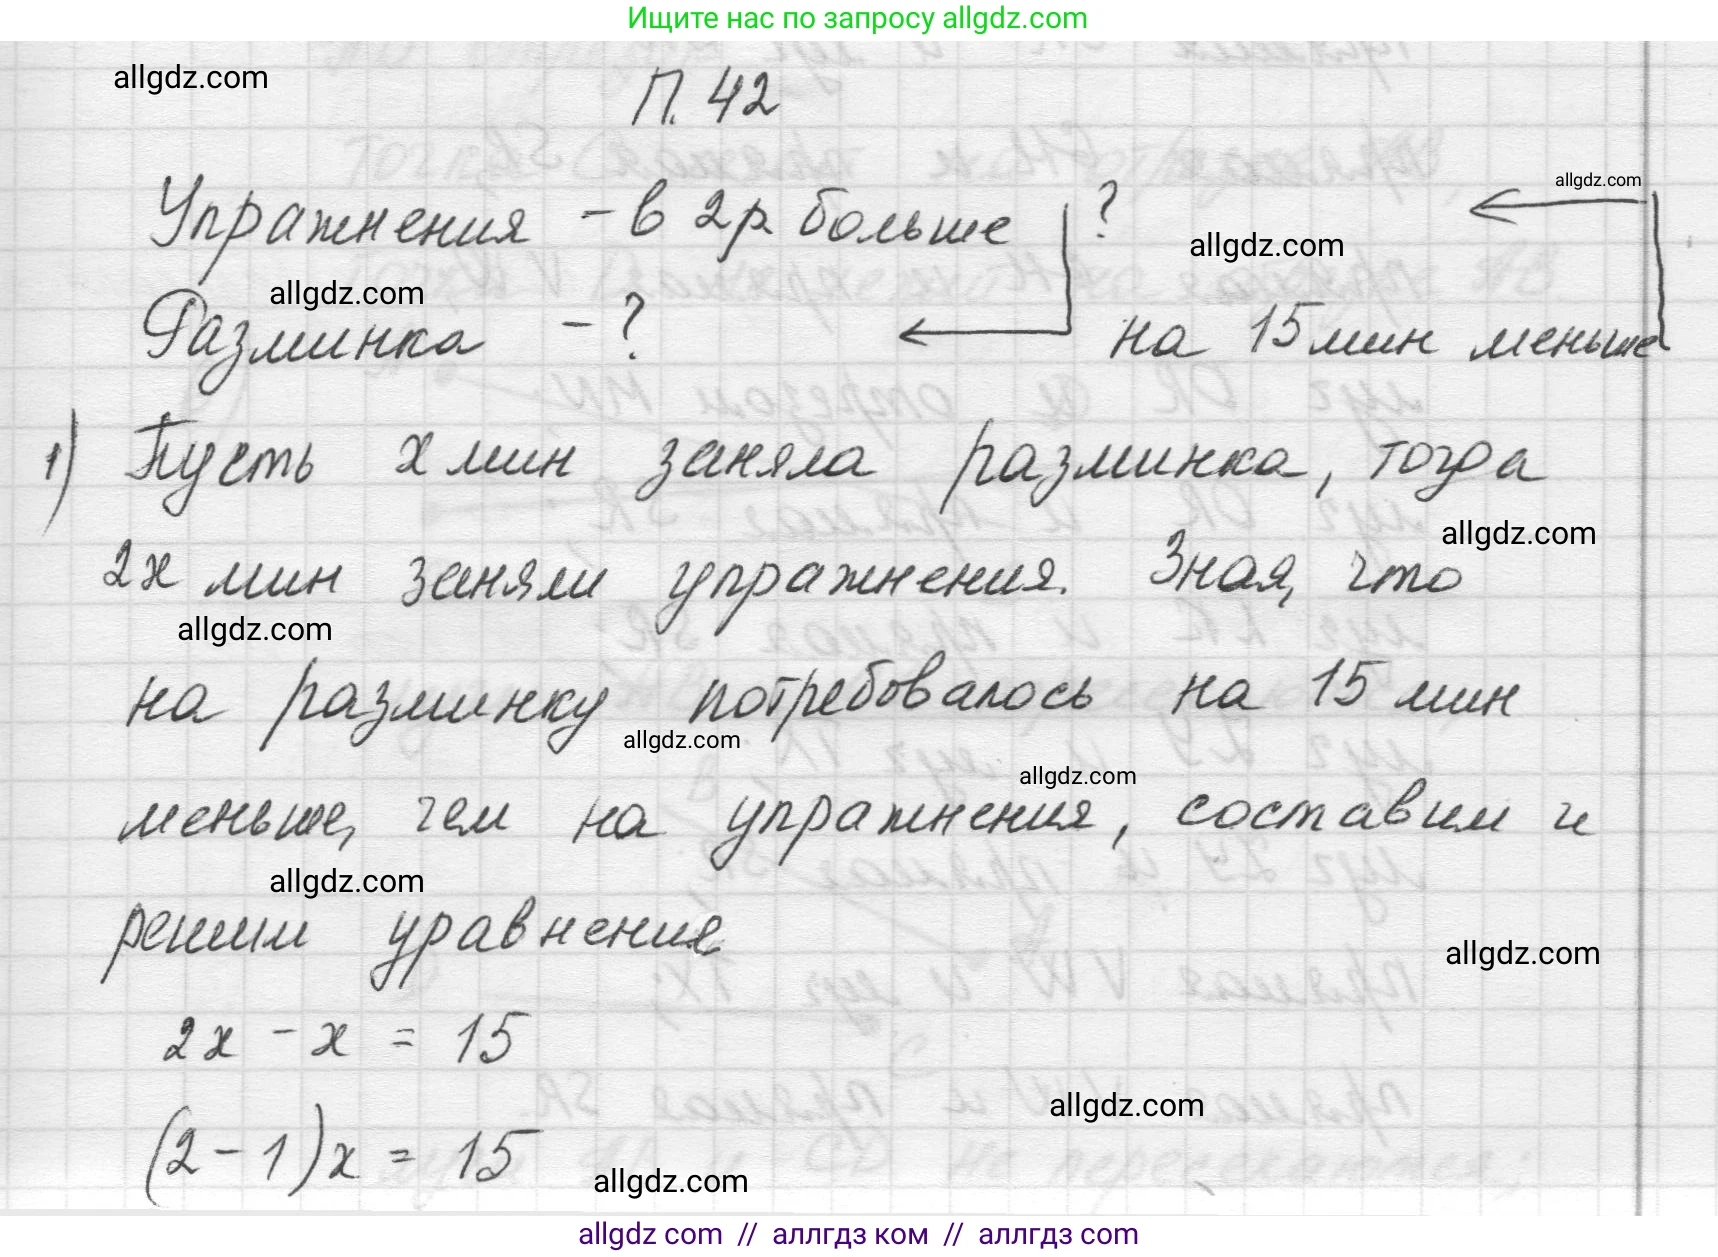 Ищите нас по запросу allgdz.com
allgdz.com
П. 42
allgdz.com
Упражнения – в 2 р больше ?
allgdz.com
allgdz.com
Разминка – ? на 15 мин меньше
1) Пусть x мин заняла разминка, тогда
allgdz.com
2x мин заняли упражнения. Зная, что
allgdz.com
на разминку потребовалось на 15 мин
allgdz.com
allgdz.com
меньше, чем на упражнения, составим и
allgdz.com
решим уравнение.
allgdz.com
2x - x = 15
allgdz.com
(2 - 1)x = 15
allgdz.com
allgdz.com // аллгдз ком // аллгдз com